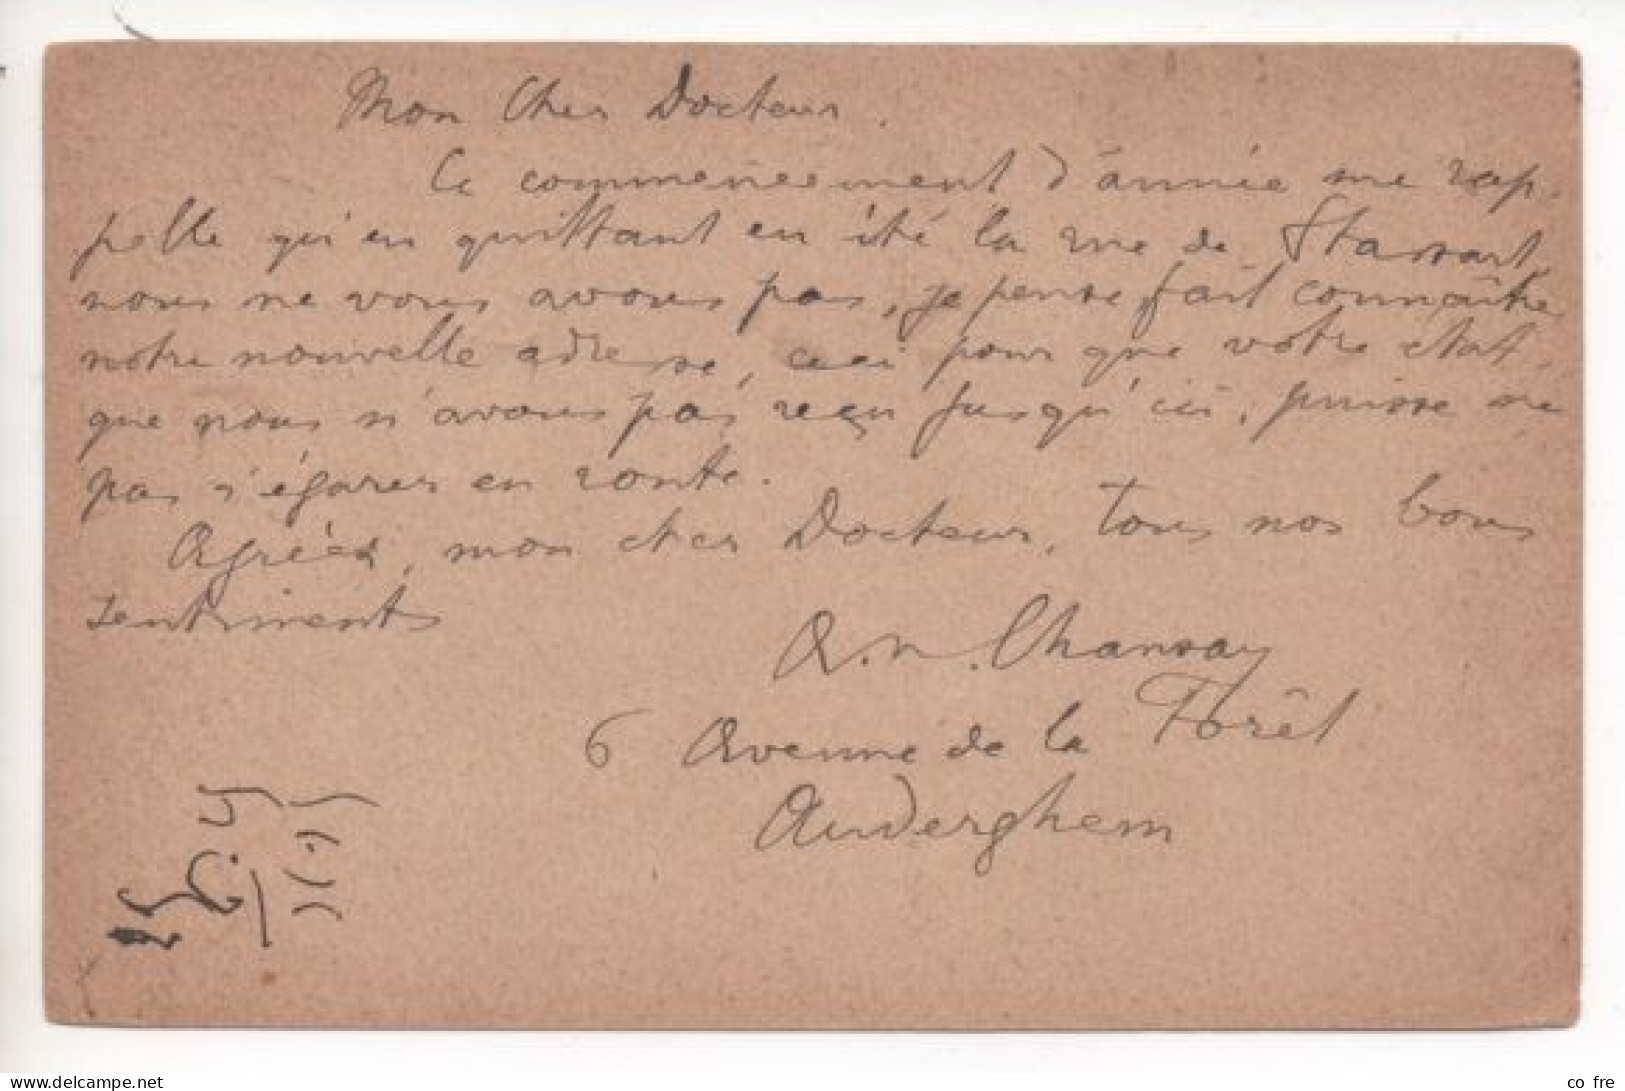 Mon Cher Docteur.
Ce commencement d'année me rap-
pelle qu'en quittant en été la rue de Stassart,
nous ne vous avons pas, je pense, fait connaître
notre nouvelle adresse, ceci pour que votre état,
que nous n'avons pas reçu jusqu'ici, puisse ne
pas s'égarer en route.
Agréez, mon cher Docteur, tous nos bons
sentiments
A. N. Chansay
6 Avenue de la Forêt
Auderghem
www.delcampe.net
co fre